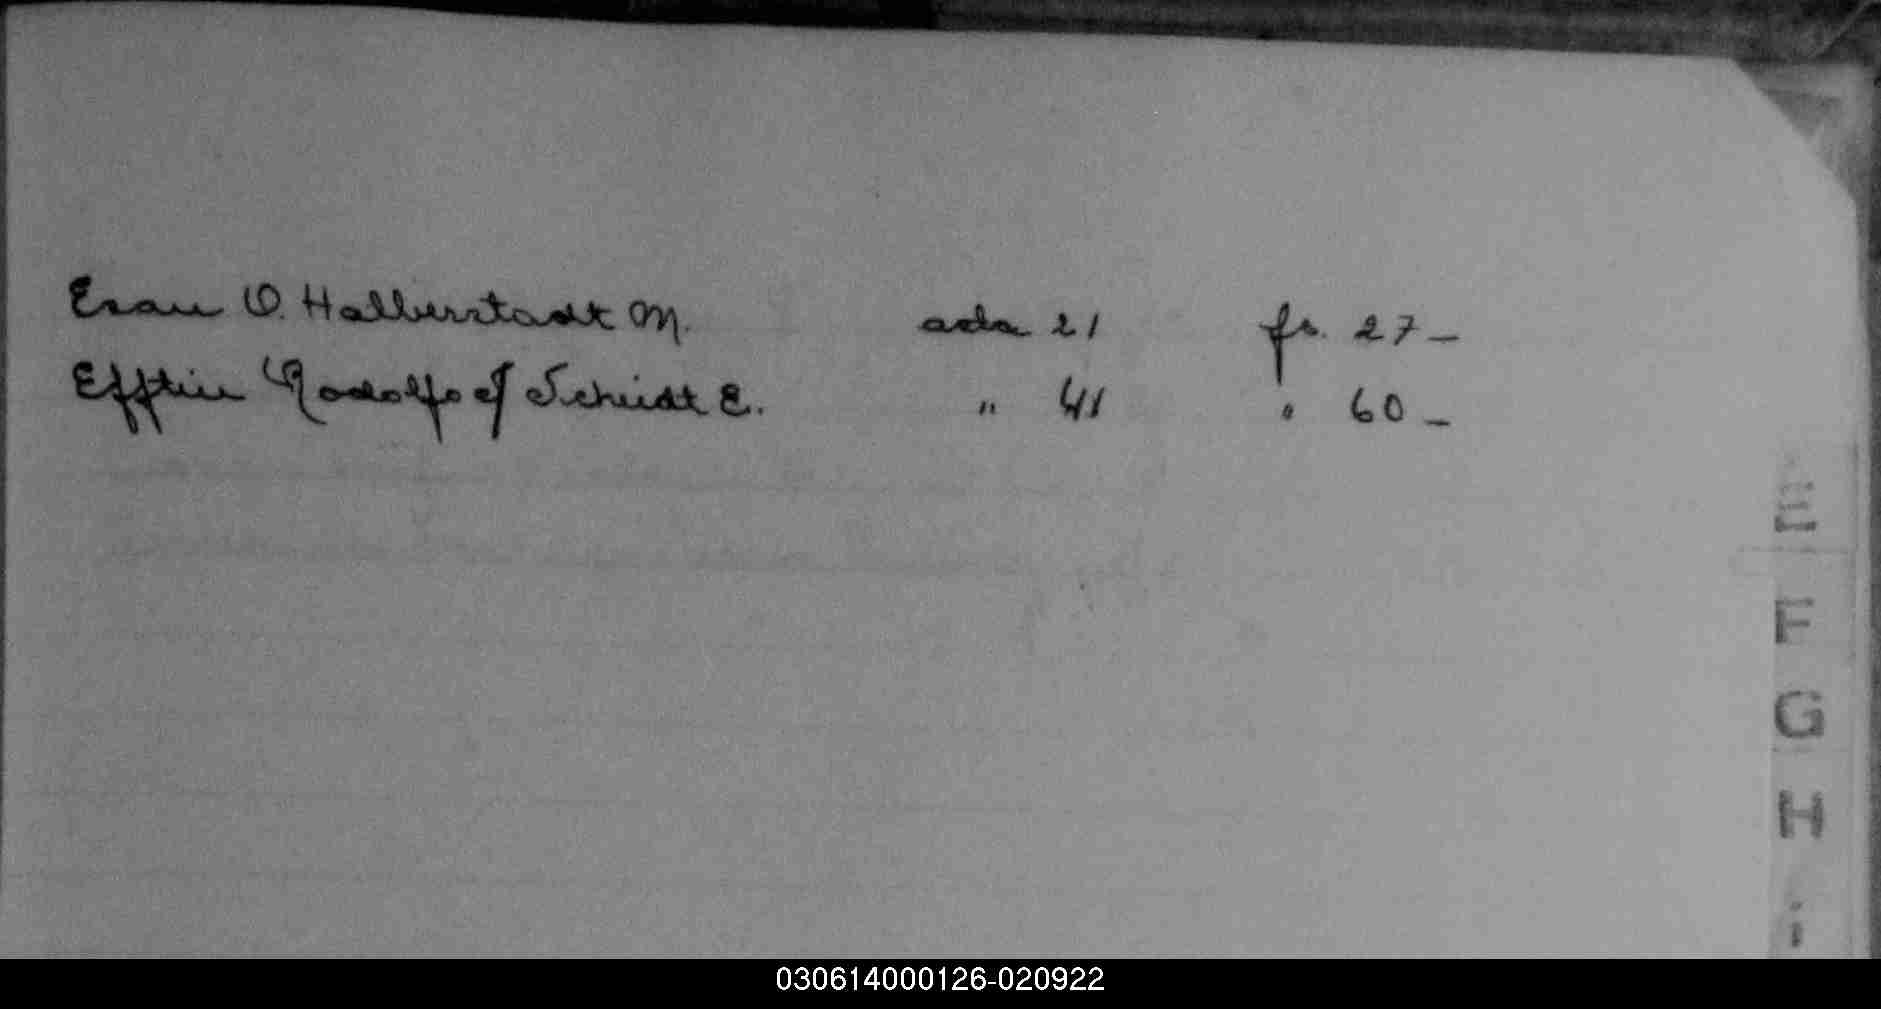 Esau O. Halberstadt M. acta 21 fs. 27 –
Efftin Rodolfo c/ Scheidt E. " 41 " 60 –
E
F
G
H
i
030614000126-020922